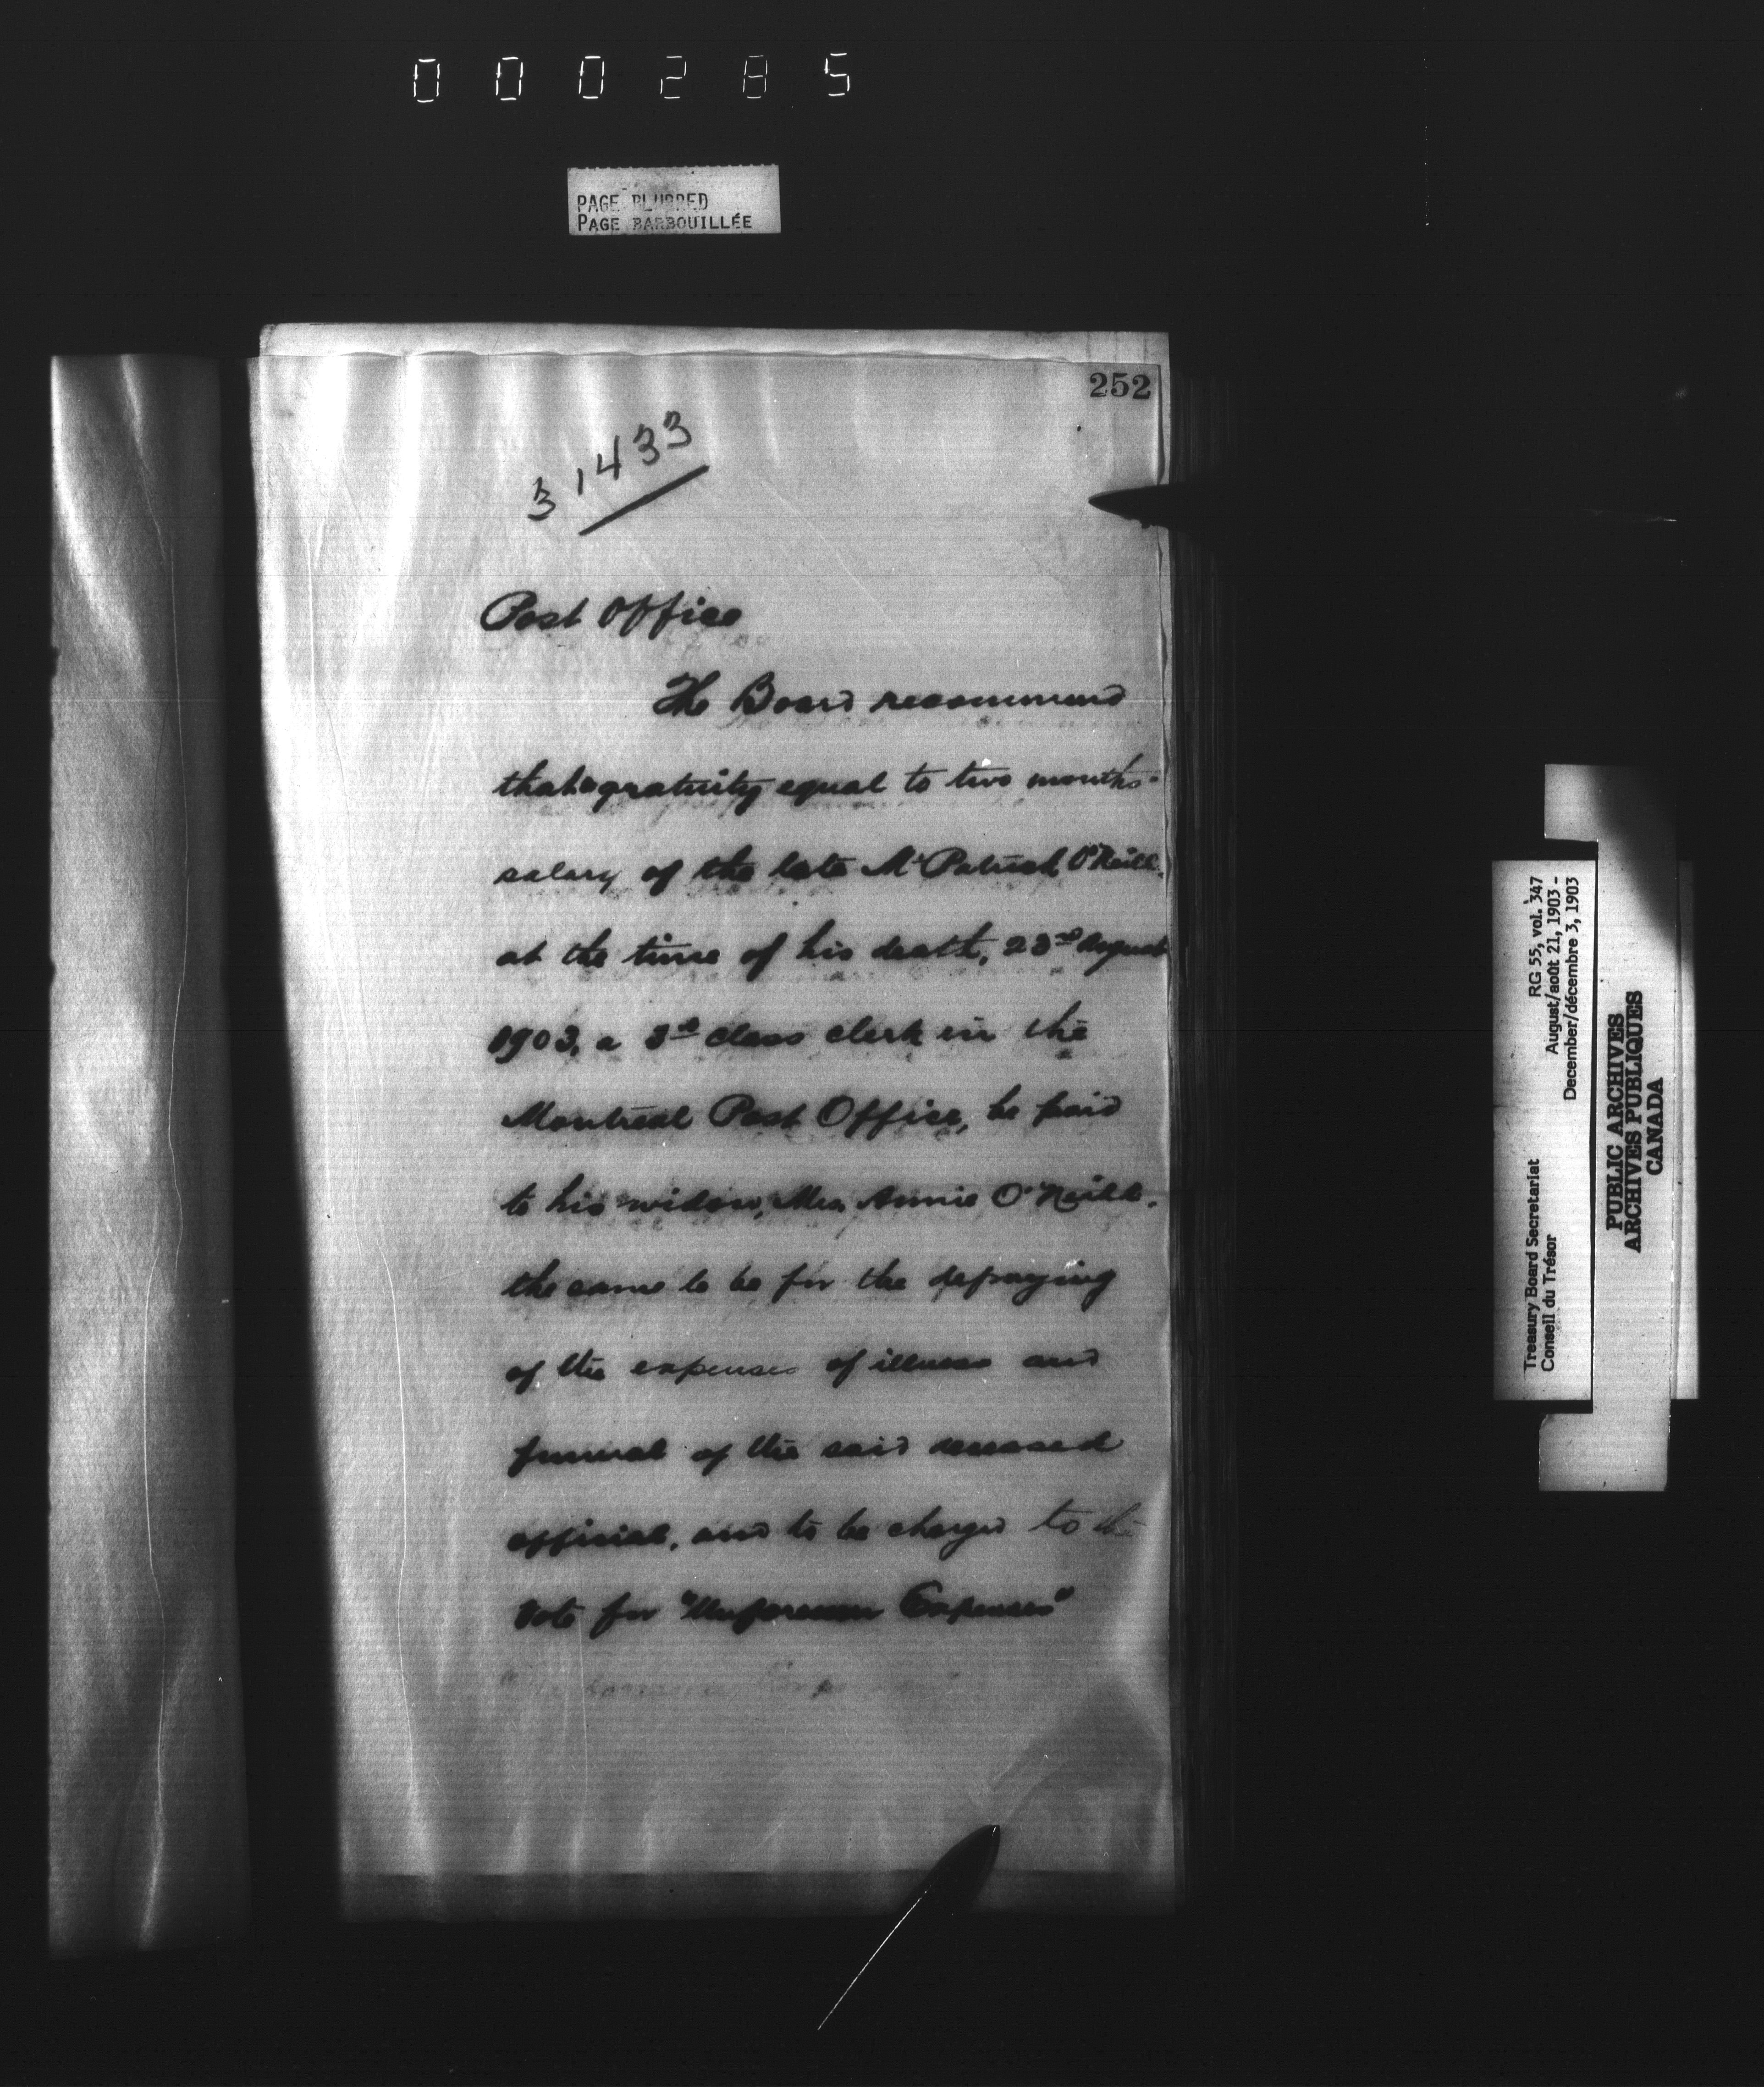 000285
PAGE BLURRED
PAGE BARBOUILLÉE
252
31433
Post Office
The Board recommend
that a gratuity equal to two months'
salary of the late Mr Patrick O'Neill.
at the time of his death, 23rd August
1903, a 3rd class clerk in the
Montreal Post Office, be paid
to his widow, Mrs Annie O'Neill.
the same to be for the defraying
of the expenses of illness and
funeral of the said deceased
official, and to be charged to the
Vote for "Unforeseen Expenses"
Treasury Board Secretariat RG 55, vol. 347
Conseil du Trésor August/août 21, 1903 -
December/décembre 3, 1903
PUBLIC ARCHIVES
ARCHIVES PUBLIQUES
CANADA